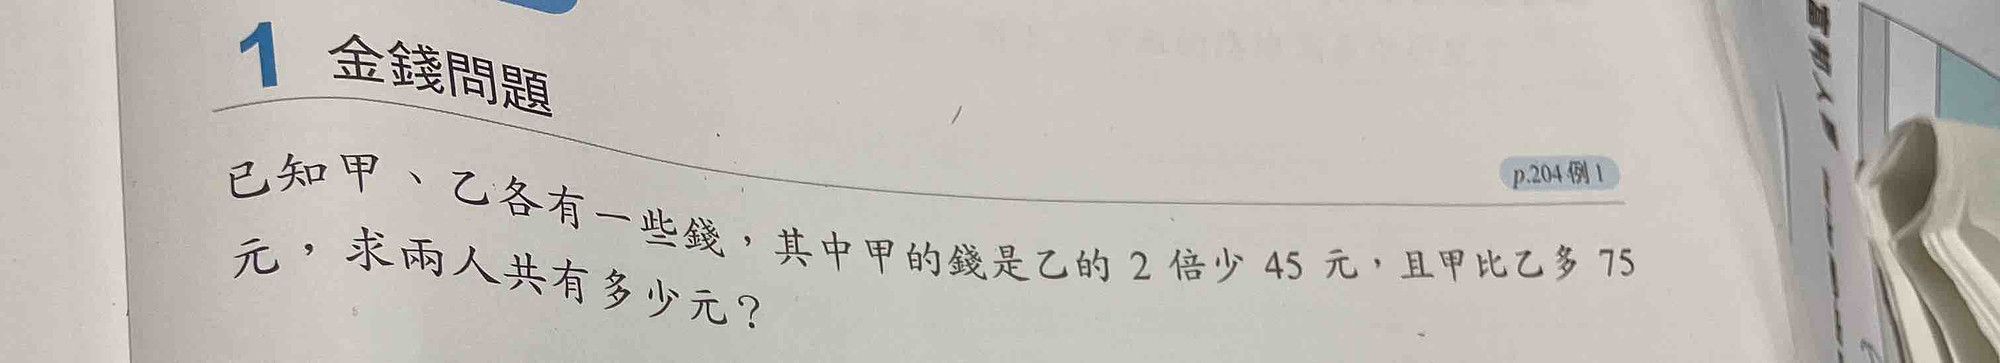 1 金錢問題
p.204 例 1
已知甲、乙各有一些錢，其中甲的錢是乙的 2 倍少 45 元，且甲比乙多 75
元，求兩人共有多少元？